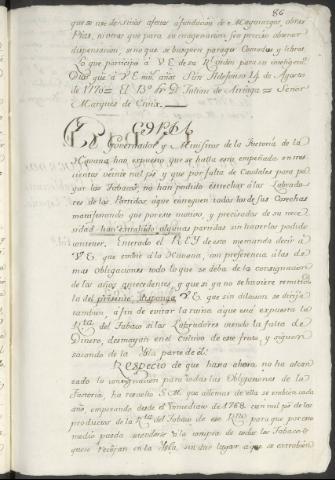 86
que se use de sitios afectos a fundacion de Mayorazgos, obras
Pias, ni otras que para su enagenacion, sea preciso obtener
dispensacion, sino que se busquen parages Comodos y libres.
Lo que participo a V.E. de su Rl orden para su inteligencia
Dios gue a V.E. ms. años. Sn Ildefonso 14 de Agosto
de 1770 = El Bo. fr. Dn Julian de Arriaga = Señor
Marques de Croix.
El Governador y Ministros de la Factoria de la
Havana han expuesto que se halla esta empeñada en tres
cientos veinte mil ps y que por falta de Caudales para pa
gar los Tabacos, no han podido estrechar a los Labrado
res de los Partidos a que entreguen todas sus Cosechas
manifestando que por este motivo, y precisados de su nece
sidad han extrahido algunas partidas sin haverlos podido
contener. Enterado el REY de esto manda decir a
V.E. que embie a la Havana, con preferencia a las de
mas Obligaciones todo lo que se deba de la consignacion
de los años antecedentes, y que si ya no huviere remitido
la del presente, disponga V.E. que sin dilacion se dirija
tambien, a fin de evitar la ruina a que está expuesta la
Rta del Tabaco si los Labradores viendo la falta de
Dinero, desmayan en el cultivo de este fruto y siguen
sacando de la Ysla parte de él:
Respecto de que hasta ahora no ha alcan
zado la consignacion para todas las Obligaciones de la
Factoria, ha resuelto S.M. que ademas de ella se embien cada
año, empezando desde el inmediato de 1768. cien mil ps de los
productos de la Rta del Tabaco de ese Rno para que por este
medio pueda atenderse a la compra de todos los Tabacos
que se recojan en la Ysla, sin dar lugar a que se extrahigan